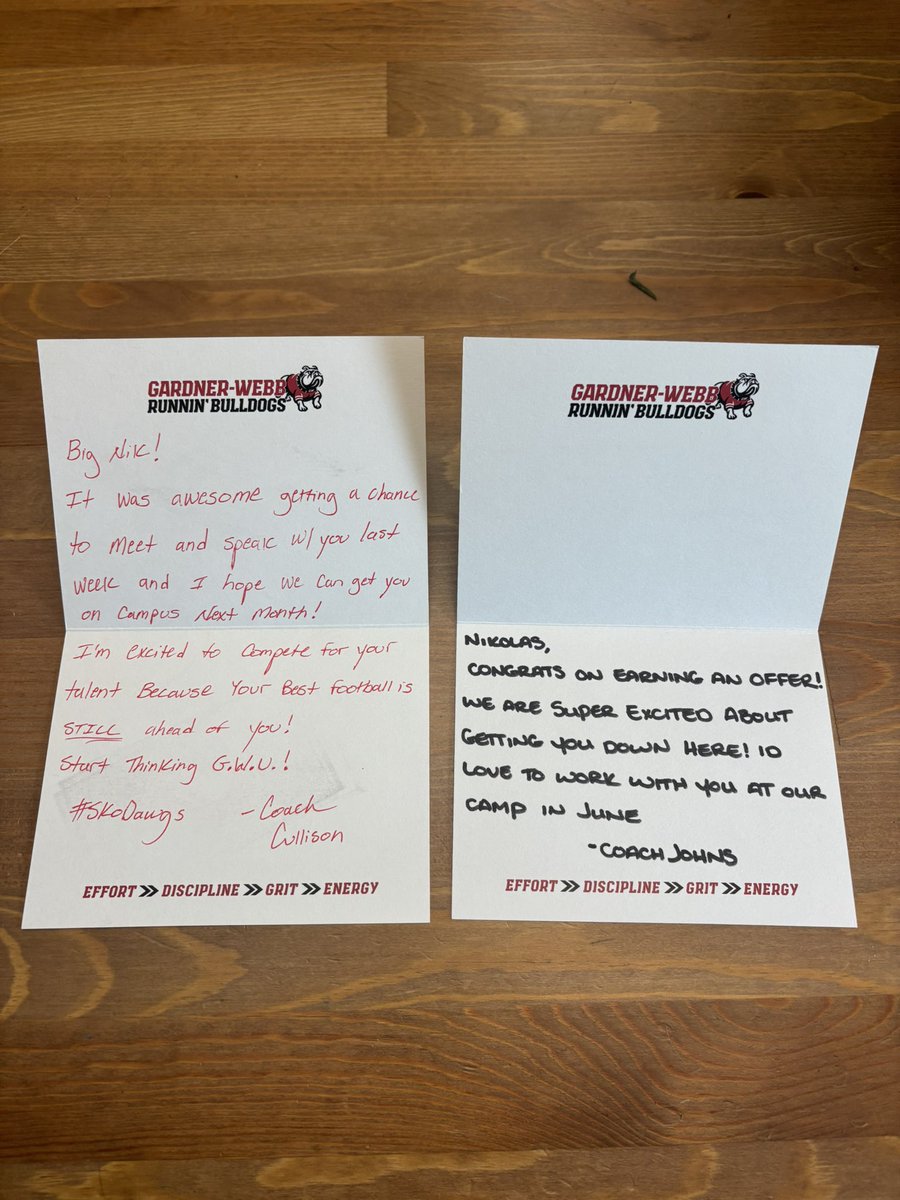 GARDNER-WEBB
RUNNIN' BULLDOGS
Big Nik!
It was awesome getting a chance
to meet and speak w/ you last
week and I hope we can get you
on campus next month!
I'm excited to compete for your
talent Because Your Best football is
STILL ahead of you!
Start Thinking G.W.U.!
#SkoDawgs - Coach
Cullison
EFFORT >> DISCIPLINE >> GRIT >> ENERGY
GARDNER-WEBB
RUNNIN' BULLDOGS
NIKOLAS,
CONGRATS ON EARNING AN OFFER!
WE ARE SUPER EXCITED ABOUT
GETTING YOU DOWN HERE! ID
LOVE TO WORK WITH YOU AT OUR
CAMP IN JUNE
-COACH JOHNS
EFFORT >> DISCIPLINE >> GRIT >> ENERGY